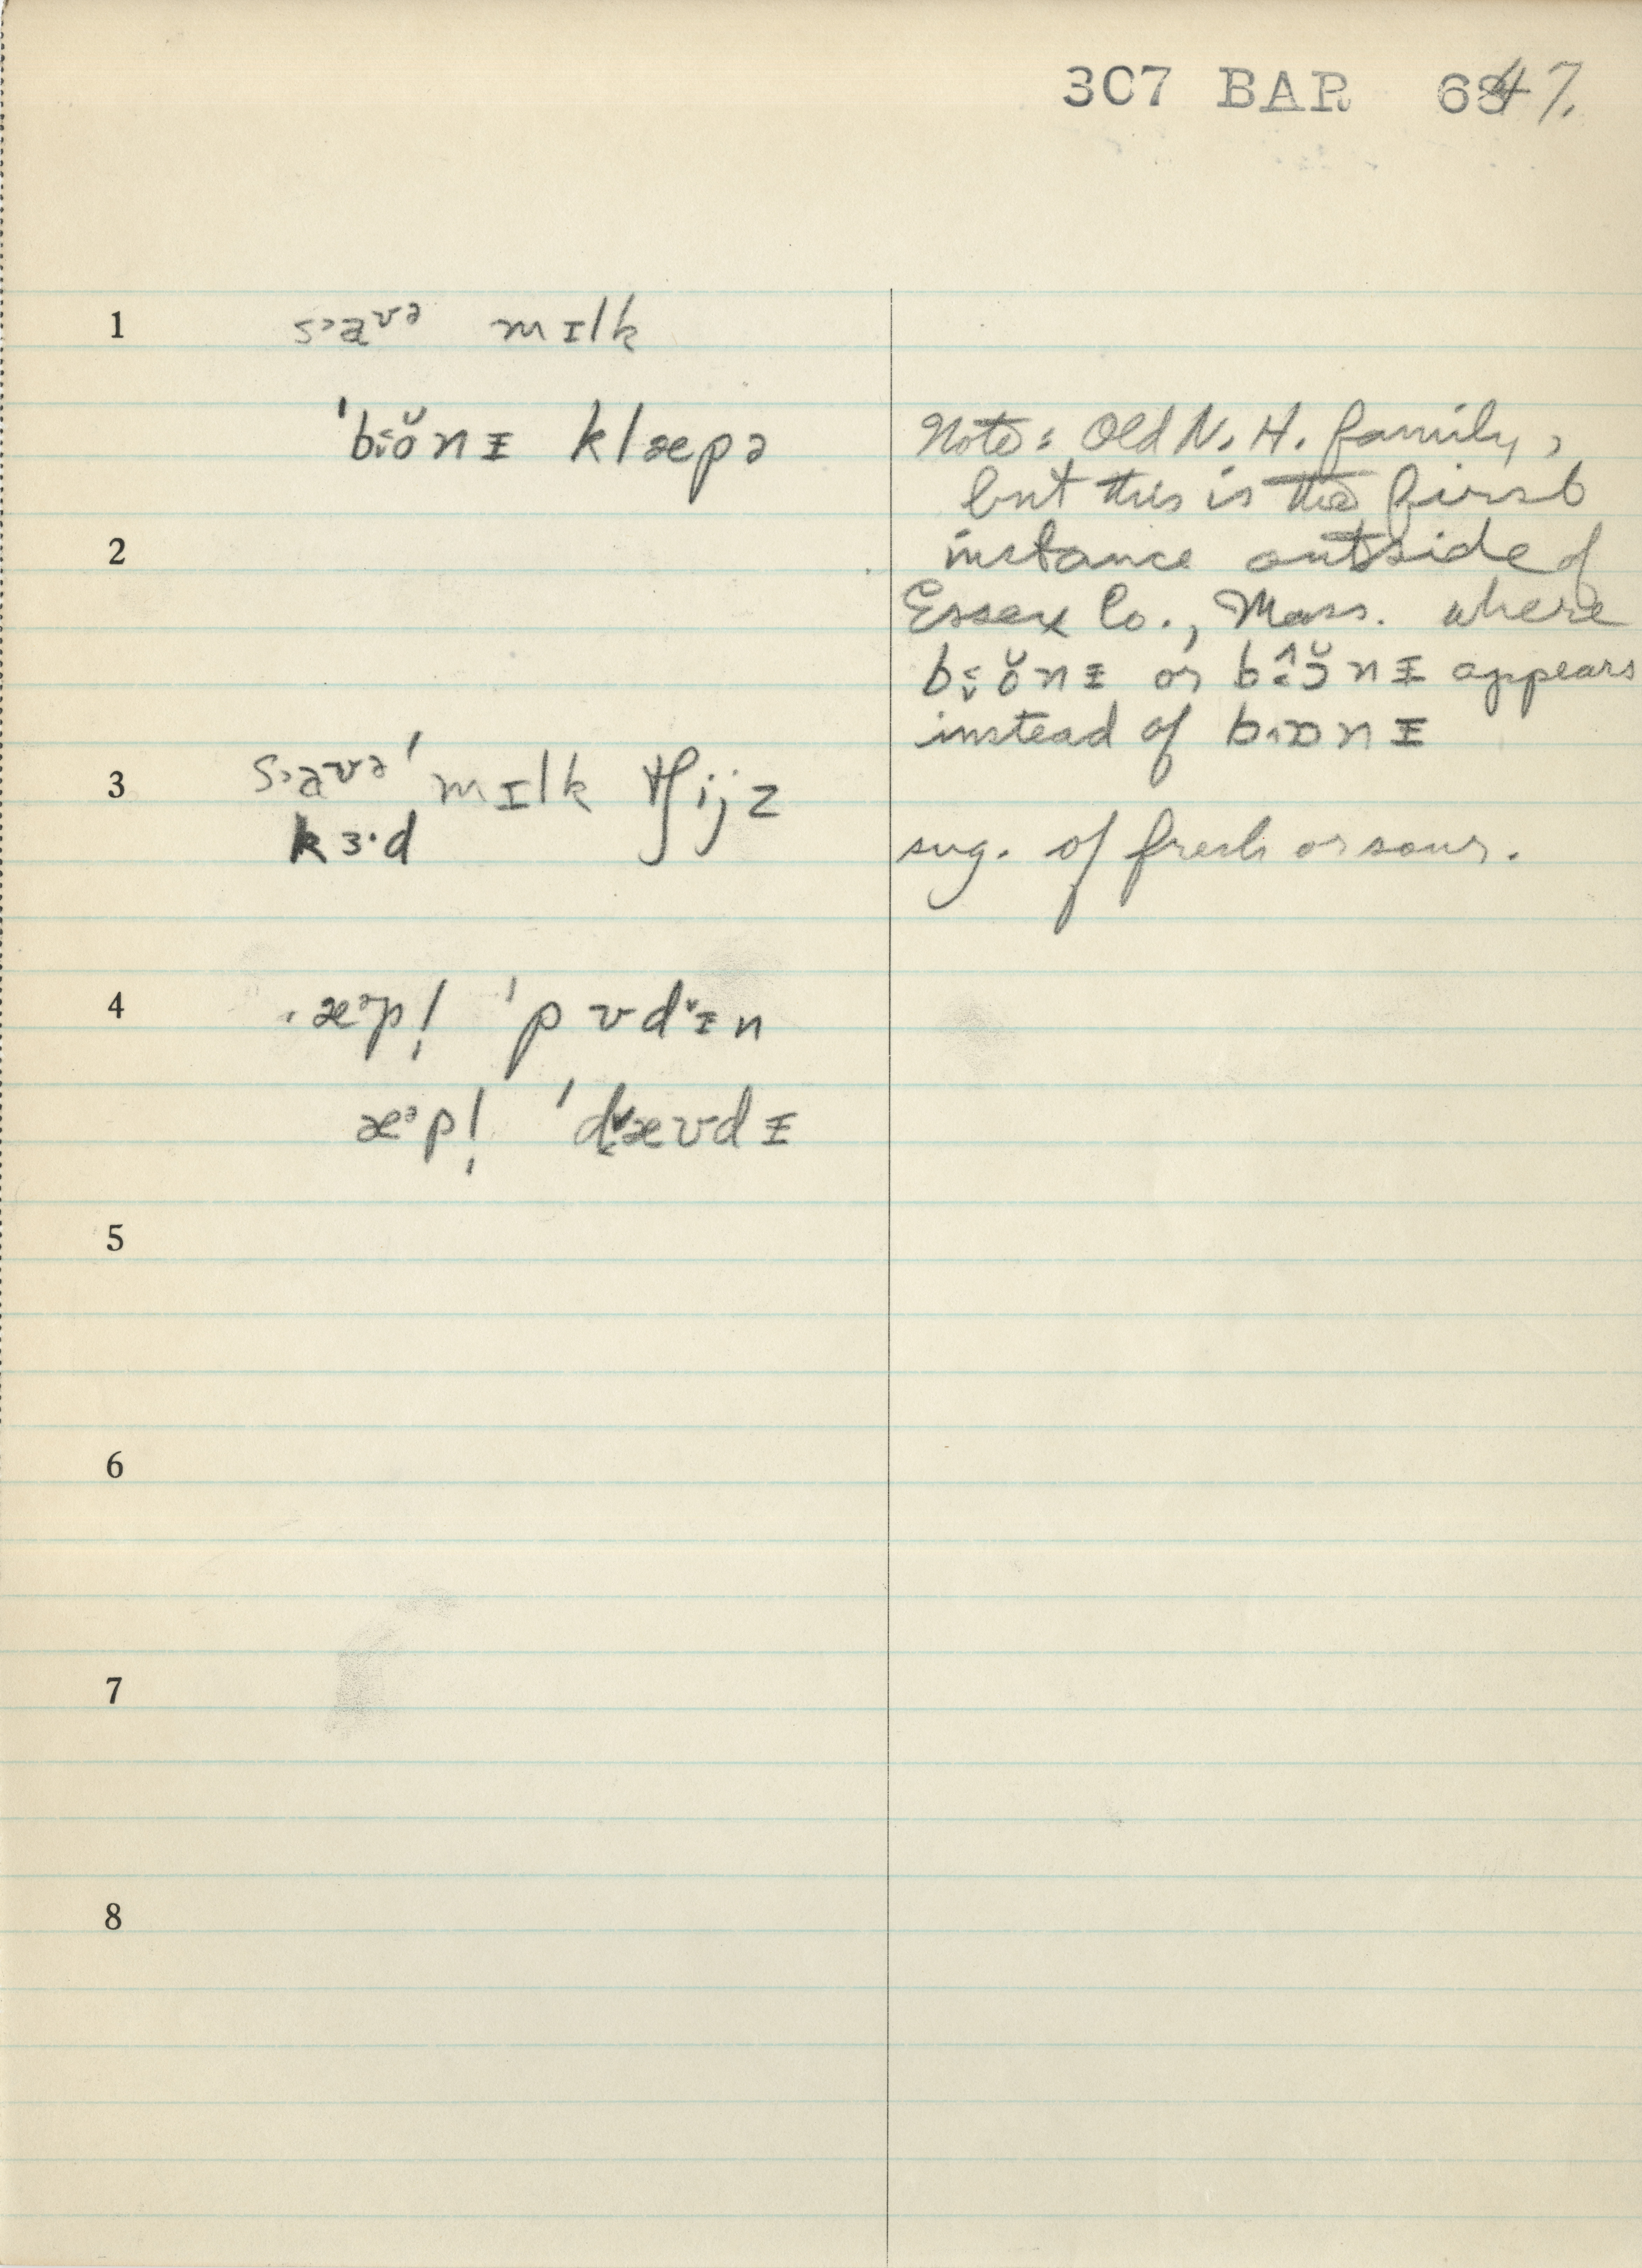 307 BAR 647.
1 s˃aᶷᵊ mɪlk
ˈbɒ̆nᵻ klæpə
Note: Old N. H. family,
but this is the first
2 instance outside of
Essex Co., Mass. where
appears
instead of
3 s˃aᶷᵊ ˈmɪlk tʃijz
kɜ·d
sug. of fresh or sour.
4 æᵊpl̩ ˈpʊdᵻn
æᵊpl̩ ˈdæʊdᵻ
5
6
7
8